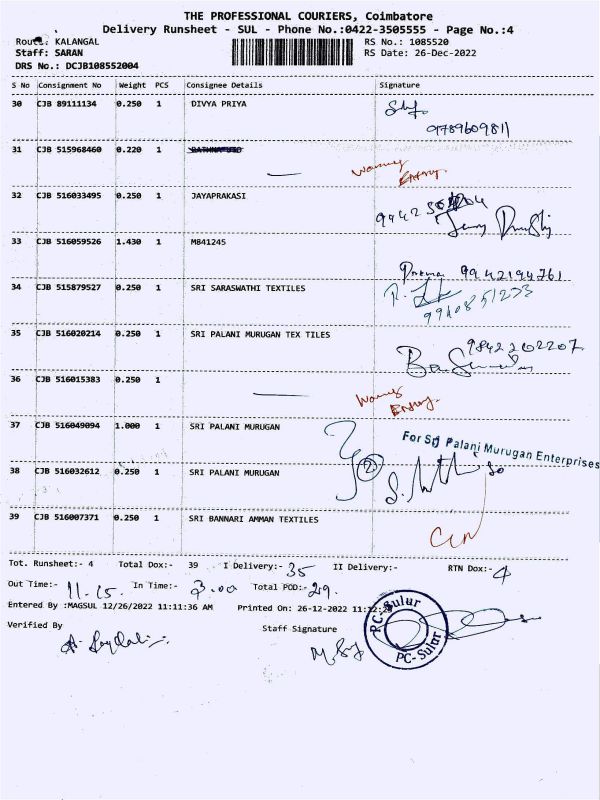 THE PROFESSIONAL COURIERS, Coimbatore
Delivery Runsheet - SUL - Phone No.:0422-3505555 - Page No.:4
Route: KALANGAL RS No.: 1085520
Staff: SARAN RS Date: 26-Dec-2022
DRS No.: DCJB108552004
S No Consignment No Weight PCS Consignee Details Signature
30 CJB 89111134 0.250 1 DIVYA PRIYA
9789609811
31 CJB 515968460 0.220 1
Entry.
32 CJB 516033495 0.250 1 JAYAPRAKASI
33 CJB 516059526 1.430 1 MB41245
9942194761
34 CJB 515879527 0.250 1 SRI SARASWATHI TEXTILES
35 CJB 516020214 0.250 1 SRI PALANI MURUGAN TEX TILES
9842202207
36 CJB 516015383 0.250 1
Entry.
37 CJB 516049094 1.000 1 SRI PALANI MURUGAN
For Sri Palani Murugan Enterprises
2
38 CJB 516032612 0.250 1 SRI PALANI MURUGAN
39 CJB 516007371 0.250 1 SRI BANNARI AMMAN TEXTILES
Tot. Runsheet:- 4 Total Dox:- 39 I Delivery:- 35 II Delivery:- RTN Dox:- 4
Out Time:- 11.15. In Time:- 3.00 Total POD:- 29.
Entered By :MAGSUL 12/26/2022 11:11:36 AM Printed On: 26-12-2022 11:12:
Verified By Staff Signature
PC-Sulur
PC-Sulur